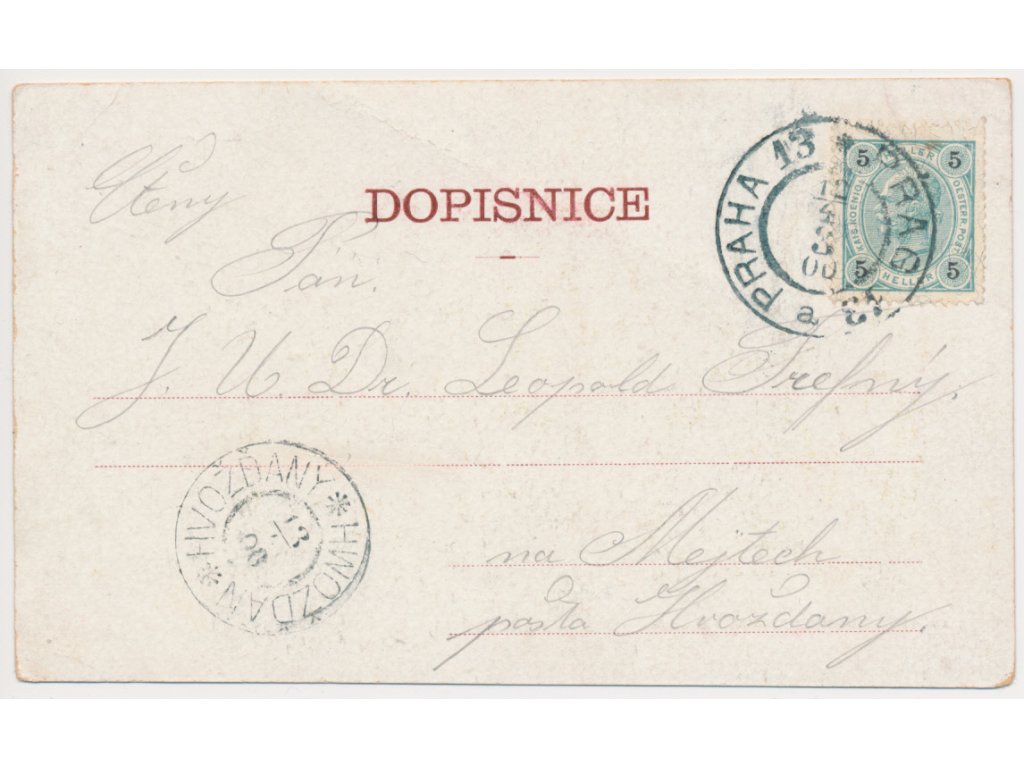 Ctěný
DOPISNICE
Pán.
J. U. Dr. Leopold Trefný.
na Mejtech
pošta Hvožďany.
PRAHA 13 * PRAG 13
a
00
5 HELLER 5
KAIS. KOENIGL. OESTERR. POST
5 HELLER 5
* HVOŽĎANY * HWOŽDAN
13
00